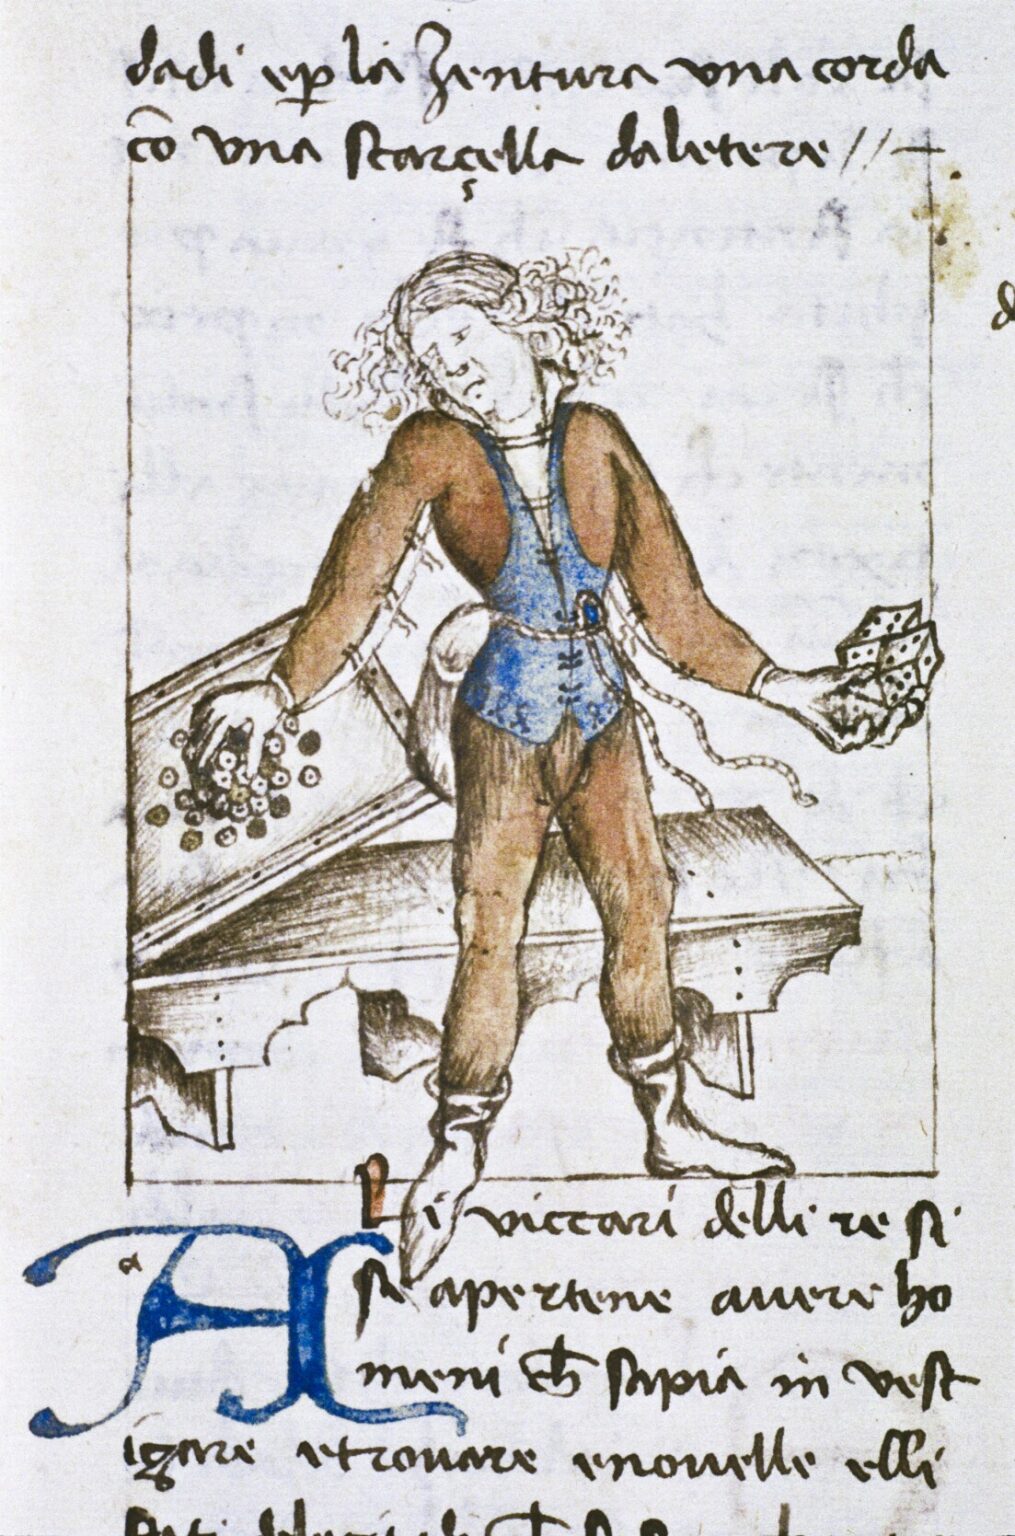 dadi ep la zentura una corda
cō una scarcella da letere //
Li viccari delli re si
A
si apertene avere ho
meni ch sapia in vest
igare e trovare e novelle elli